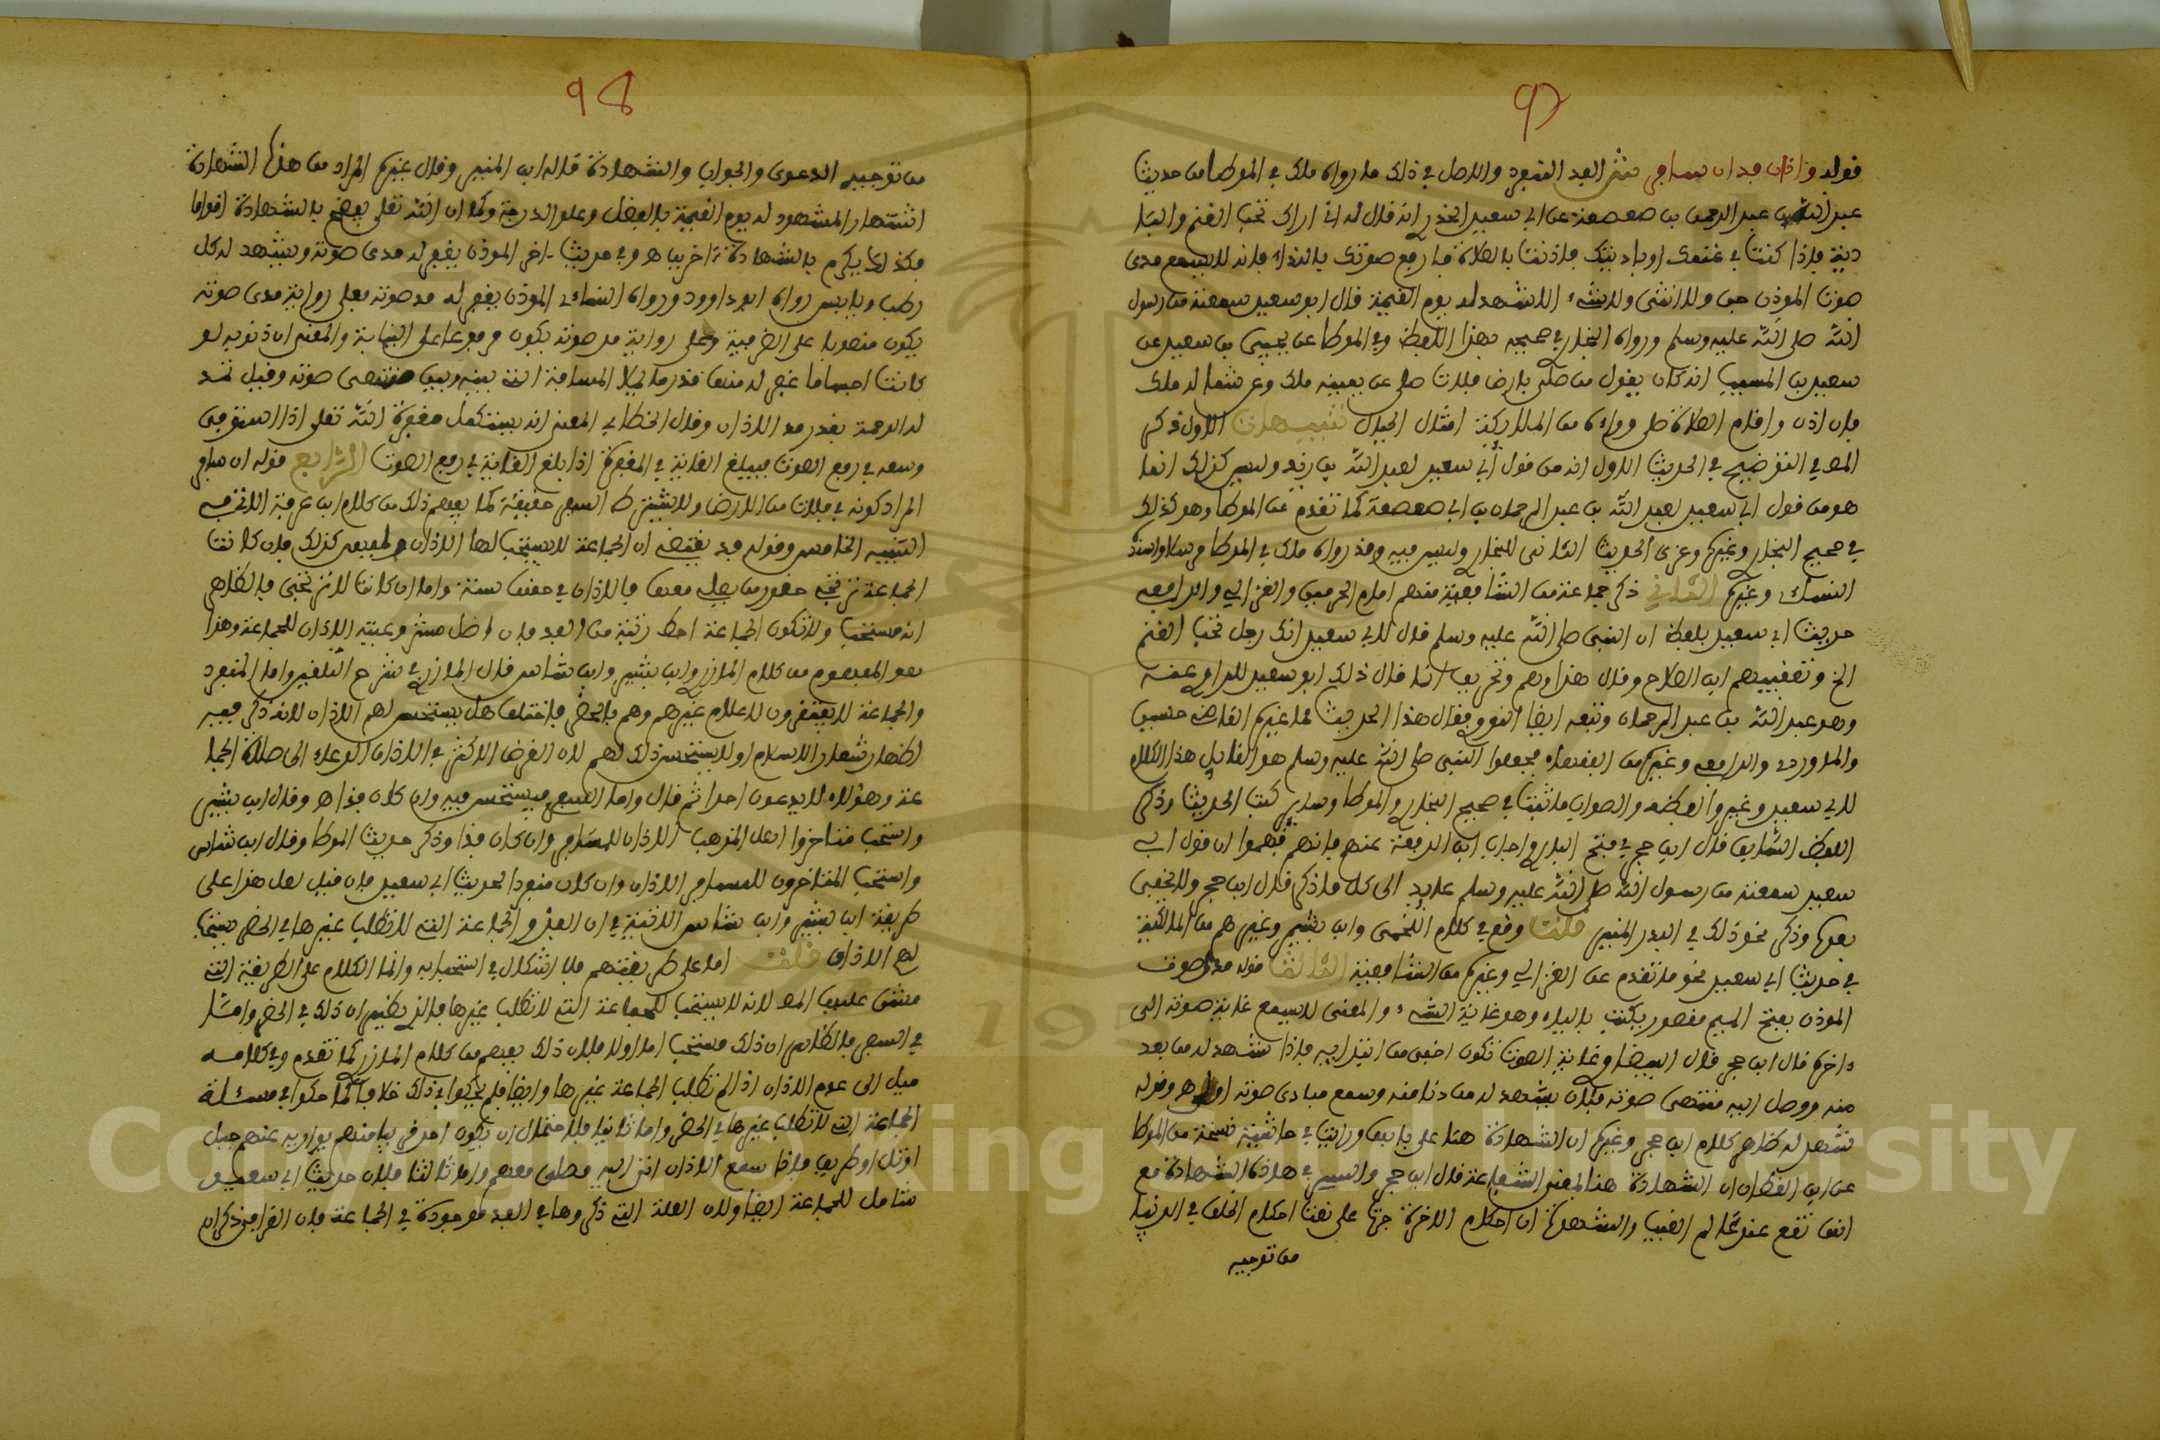 97
قوله وإذان فذ ان سافر ش الفذ المنفرد والاصل في ذلك ما رواه ملك في الموطا من حديث
عبد الرحمن بن صعصعة عن ابي سعيد الخذري انه قال له اني اراك تحب الغنم والبا
دية فإذا كنت في غنمك او باديتك فاذنت بالصلاة فارفع صوتك بالنداء فانه لا يسمع مدى
صوت الموذن جن ولا انس ولا شيء الا شهد له يوم القيمة قال ابو سعيد سمعته من رسول
الله صلى الله عليه وسلم ورواه البخاري في صحيحه بهذا اللفظ وفي الموطا عن يحيى بن سعيد عن
سعيد بن المسيب انه كان يقول من صلى بارض فلات صلى عن يمينه ملك وعن شماله ملك
فان اذن واقام الصلاة صلى وراءه من الملائكة امثال الجبال تنبيهات الاول ذكر
المص في التوضيح في الحديث الاول انه من قول أبي سعيد لعبد الله بن زيد وليس كذلك انما
هو من قول ابي سعيد لعبد الله بن عبد الرحمان بن ابي صعصعة كما تقدم عن الموطا وهو كذلك
في صحيح البخاري وغيره وعزى الحديث الثاني للبخاري وليس فيه وقد رواه ملك في الموطا مرسلا واسنده
النساي وغيره الثاني ذكر جماعة من الشافعية منهم امام الحرمين والغزالي والرافعي
حديث ابي سعيد بلفظ ان النبي صلى الله عليه وسلم قال لابي سعيد انك رجل تحب الغنم
الخ وتعقبهم ابن الصلاح وقال هذا وهم وتحريف انما قال ذلك ابو سعيد للراوي عنه
وهو عبد الله بن عبد الرحمان وتبعه ايضا النووي فقال هذا الحديث مما غيره القاضي حسين
والماوردي والرافعي وغيرهم من الفقهاء فجعلوا النبي صلى الله عليه وسلم هو القايل هذا الكلام
لابي سعيد وغيروا لفظه والصواب ما ثبت في صحيح البخاري والموطا وساير كتب الحديث وذكر
اللفظ السابق قال ابن حجر في فتح الباري واجاب ابن الرفعة عنهم بانهم فهموا ان قول ابي
سعيد سمعته من رسول الله صلى الله عليه وسلم عايد الى كل ما ذكر قال ابن حجر ولا يخفى
بعده وذكر نحو ذلك في البدر المنير قلت وقع في كلام اللخمي وابن بشير وغيرهم من المالكية
في حديث ابي سعيد نحو ما تقدم عن الغزالي وغيره من الشافعية الثالث قوله مدى صوت
الموذن بفتح الميم مقصور يكتب بالياء وهو غاية الشيء والمعنى لا يسمع غاية صوته الى
داخره قال ابن حجر قال البيضاوي غاية الصوت تكون اخفى من ابتدايه فإذا شهد له من بعد
عنه ووصل اليه منتهى صوته فلان يشهد له من دنا منه وسمع مبادى صوته اولى هـ وقوله
شهد له ظاهر كلام ابن حجر وغيره ان الشهادة هنا على بابها ورايت في حاشية نسخة من الموطا
عن ابن القطان ان الشهادة هنا بمعنى الشفاعة قال ابن حجر والسر في هاذه الشهادة مع
انها تقع عند عالم الغيب والشهادة ان احكام الاخرة جرت على نعت احكام الخلق في الدنيا
من توجيه
98
من توجيه الدعوى والجواب والشهادة قاله ابن المنير وقال غيره المراد من هذه الشهادة
اشتهار المشهود له يوم القيمة بالفضل وعلو الدرجة وكما ان الله تعلى يفضح بالشهادة اقواما
فكذلك يكرم بالشهادة اخرين هـ وفي حديث اخر الموذن يغفر له مدى صوته ويشهد له كل
رطب ويابس رواه ابو داوود ورواه النساي الموذن يغفر له مد صوته فعلى رواية مدى صوته
يكون منصوبا على الظرفية وعلى رواية مد صوته يكون مرفوعا على النيابة والمعنى ان ذنوبه لو
كانت اجساما غفر له منها قدر ما يملا المسافة التي بينه وبين منتهى صوته وقيل تمد
له الرحمة بقدر مد الاذان وقال الخطابي المعنى انه يستكمل مغفرة الله تعلى اذا استوفى
وسعه في رفع الصوت فيبلغ الغاية في المغفرة اذا بلغ الغاية في رفع الصوت الرابع قوله ان سافر
المراد كونه في فلات من الارض ولا يشترط السفر حقيقة كما يفهم ذلك من كلام ابن عرفة الاتي
التنبيه الخامس وقوله فذ يقتضي ان الجماعة لا يستحب لها الاذان وليس كذلك فان كانت
الجماعة ترتجي حضور من يصلي معها فالاذان في حقها سنة واما ان كانت لا ترتجي فالظاهر
انه مستحب ولا تكون الجماعة احط رتبة من الفذ فان اصل مشروعية الاذان للجماعة وهذا
هو المفهوم من كلام المازري وابن بشير وابن شاس قال المازري في شرح التلقين واما المنفرد
والجماعة لا يفتقرون لاعلام غيرهم وهم بالحضر فاختلف هل يستحسن لهم الاذان لانه ذكر فيه
اظهار شعار الاسلام او لا يستحسن ذلك لهم لان الغرض الاكثر في الاذان الدعاء الى صلاة الجما
عة وهؤلاء لا يدعون احدا ثم قال واما السفر فيستحسن فيه وان كان فذا هـ وقال ابن بشير
واستحب متاخروا اهل المذهب الاذان للمسافر وان كان فذا وذكر حديث الموطا وقال ابن شاس
واستحب المتاخرون للمسافر الاذان وان كان منفردا لحديث ابي سعيد فان قيل لعل هذا على
طريقة ابن بشير وابن شاس الاتية في ان الفذ والجماعة التي لا تطلب غيرها في الحضر يستحب
لهم الاذان قلت اما على طريقتهم فلا اشكال في استحبابه وانما الكلام على الطريقة التي
مشى عليها المص لانه لا يستحب للجماعة التي لا تطلب غيرها فالذي يظهر ان ذلك في الحضر واما
في السفر فالظاهر ان ذلك مستحب اما اولا فلان ذلك يفهم من كلام المازري كما تقدم وفي كلامه
ميل الى عدم الاذان اذا لم تطلب الجماعة غيرها وايضا فلم يحكوا في ذلك خلافا كما حكوا في مسئلة
الجماعة التي لا تطلب غيرها في الحضر واما ثانيا فلاحتمال ان يكون احد قريبا منهم يواريه عنهم جبل
او تل او طريق فاذا سمع الاذان اتى اليه فصلى معهم واما ثالثا فلان حديث ابي سعيد
شامل للجماعة ايضا ولان العلة التي ذكروها في الفذ موجودة في الجماعة فان القرافي ذكر ان
Copyright © King Saud University